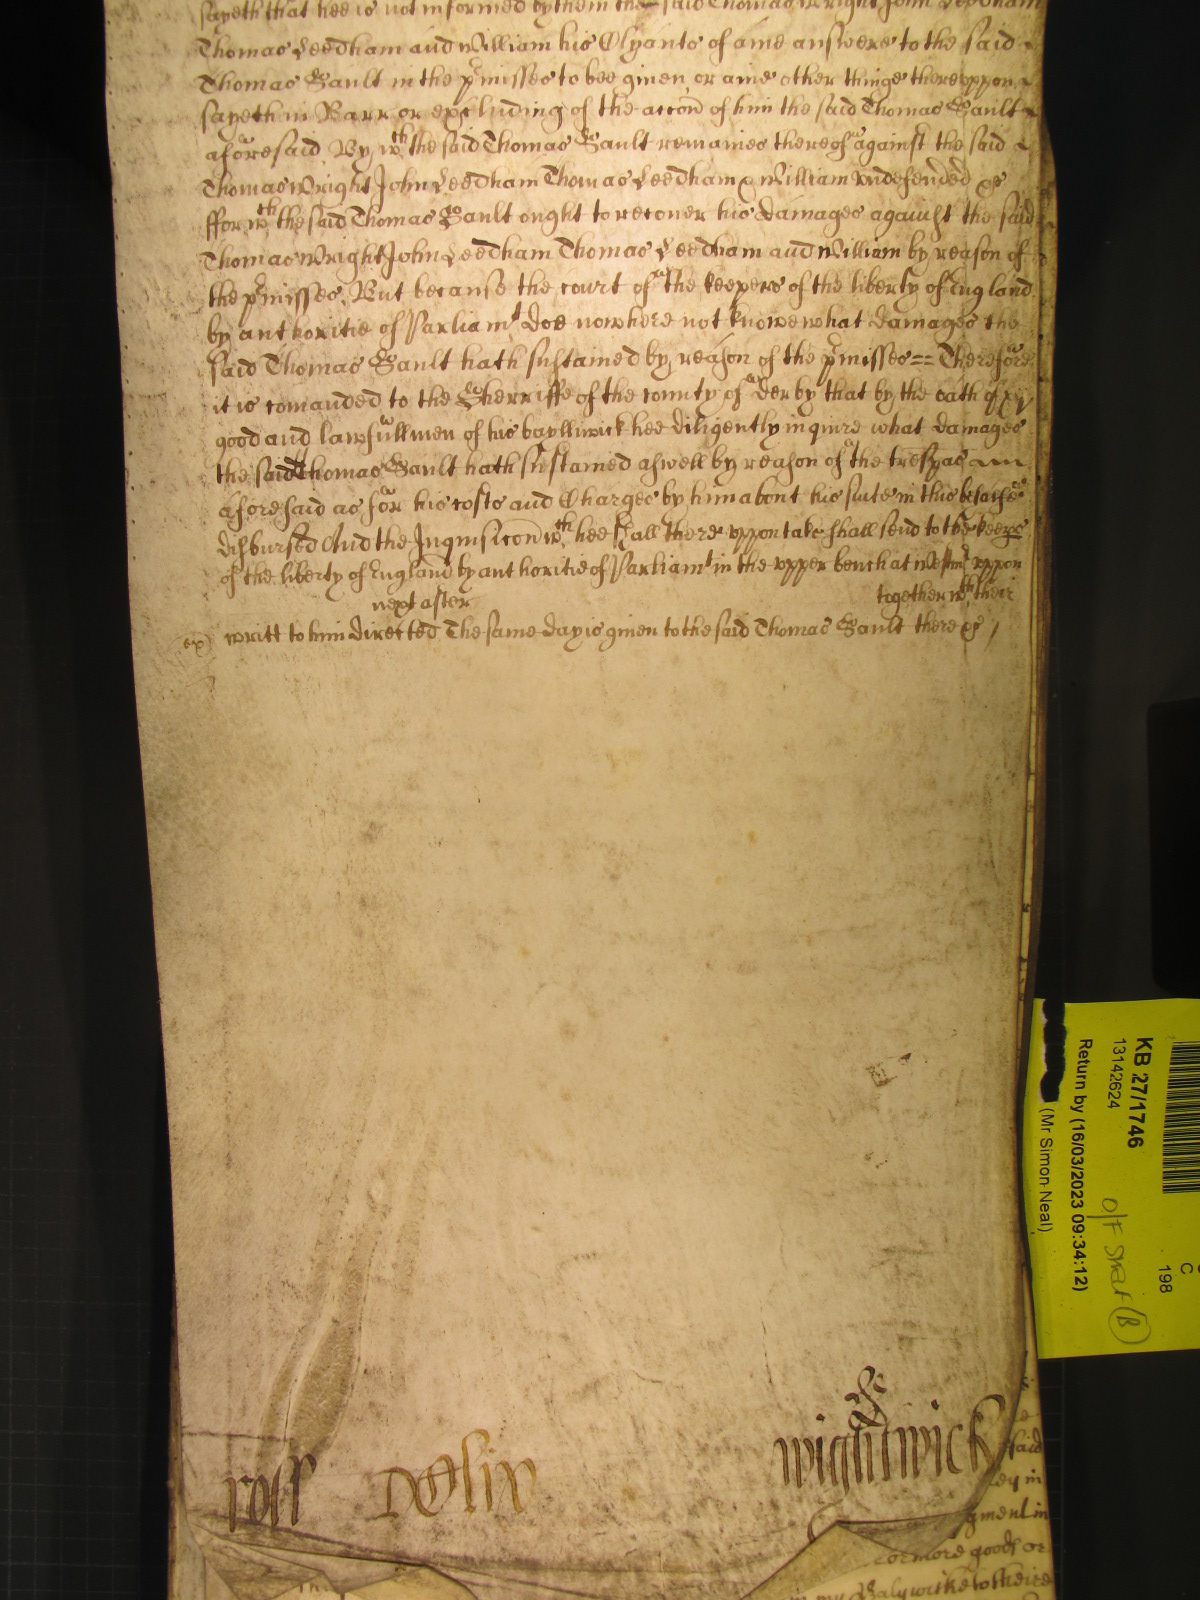 sayeth that hee is not informed by them the said Thomas Wright John Leedham
Thomas Leedham and William his Clyants of anie answere to the said
Thomas Gault in the p̱misses to bee given or anie other thinge thereuppon
sayeth in Barr or excluding of the accon̄ of him the said Thomas Gault
aforesaid By wᶜʰ the said Thomas Gault remaines thereof against the said
Thomas Wright John Leedham Thomas Leedham & William undefended &c
ffor wᶜʰ the said Thomas Gault ought to recover his damages against the said
Thomas Wright John Leedham Thomas Leedham and William by reason of
the p̱misses, But because the court of the keepers of the liberty of England
by authoritie of Parliamᵗ doe now here not knowe what damages the
said Thomas Gault hath sustained by reason of the p̱misses == Therefore
it is comanded to the Sherriffe of the county of Derby that by the oath of xij
good and lawfull men of his bayliwick hee diligently inquire what damages
the said Thomas Gault hath sustained aswell by reason of the trespas
aforesaid as for his costs and Charges by him about his suite in this behalfe
disbursed And the Inquisicon̄ wᶜʰ hee shall there uppon take shall send to the keeps
of the liberty of England by authoritie of Parliamᵗ in the upper bench at Westmʳ uppon
next after together wᵗʰ their
writt to him directed The same day is given to the said Thomas Gault there &c /
roll DClix wightwick
KB 27/1746
13142624
Return by (16/03/2023 09:34:12)
(Mr Simon Neal)
C
198
O/F Shelf (B)
said
ey in
gment in
or more goods or
in my Balywicke to the